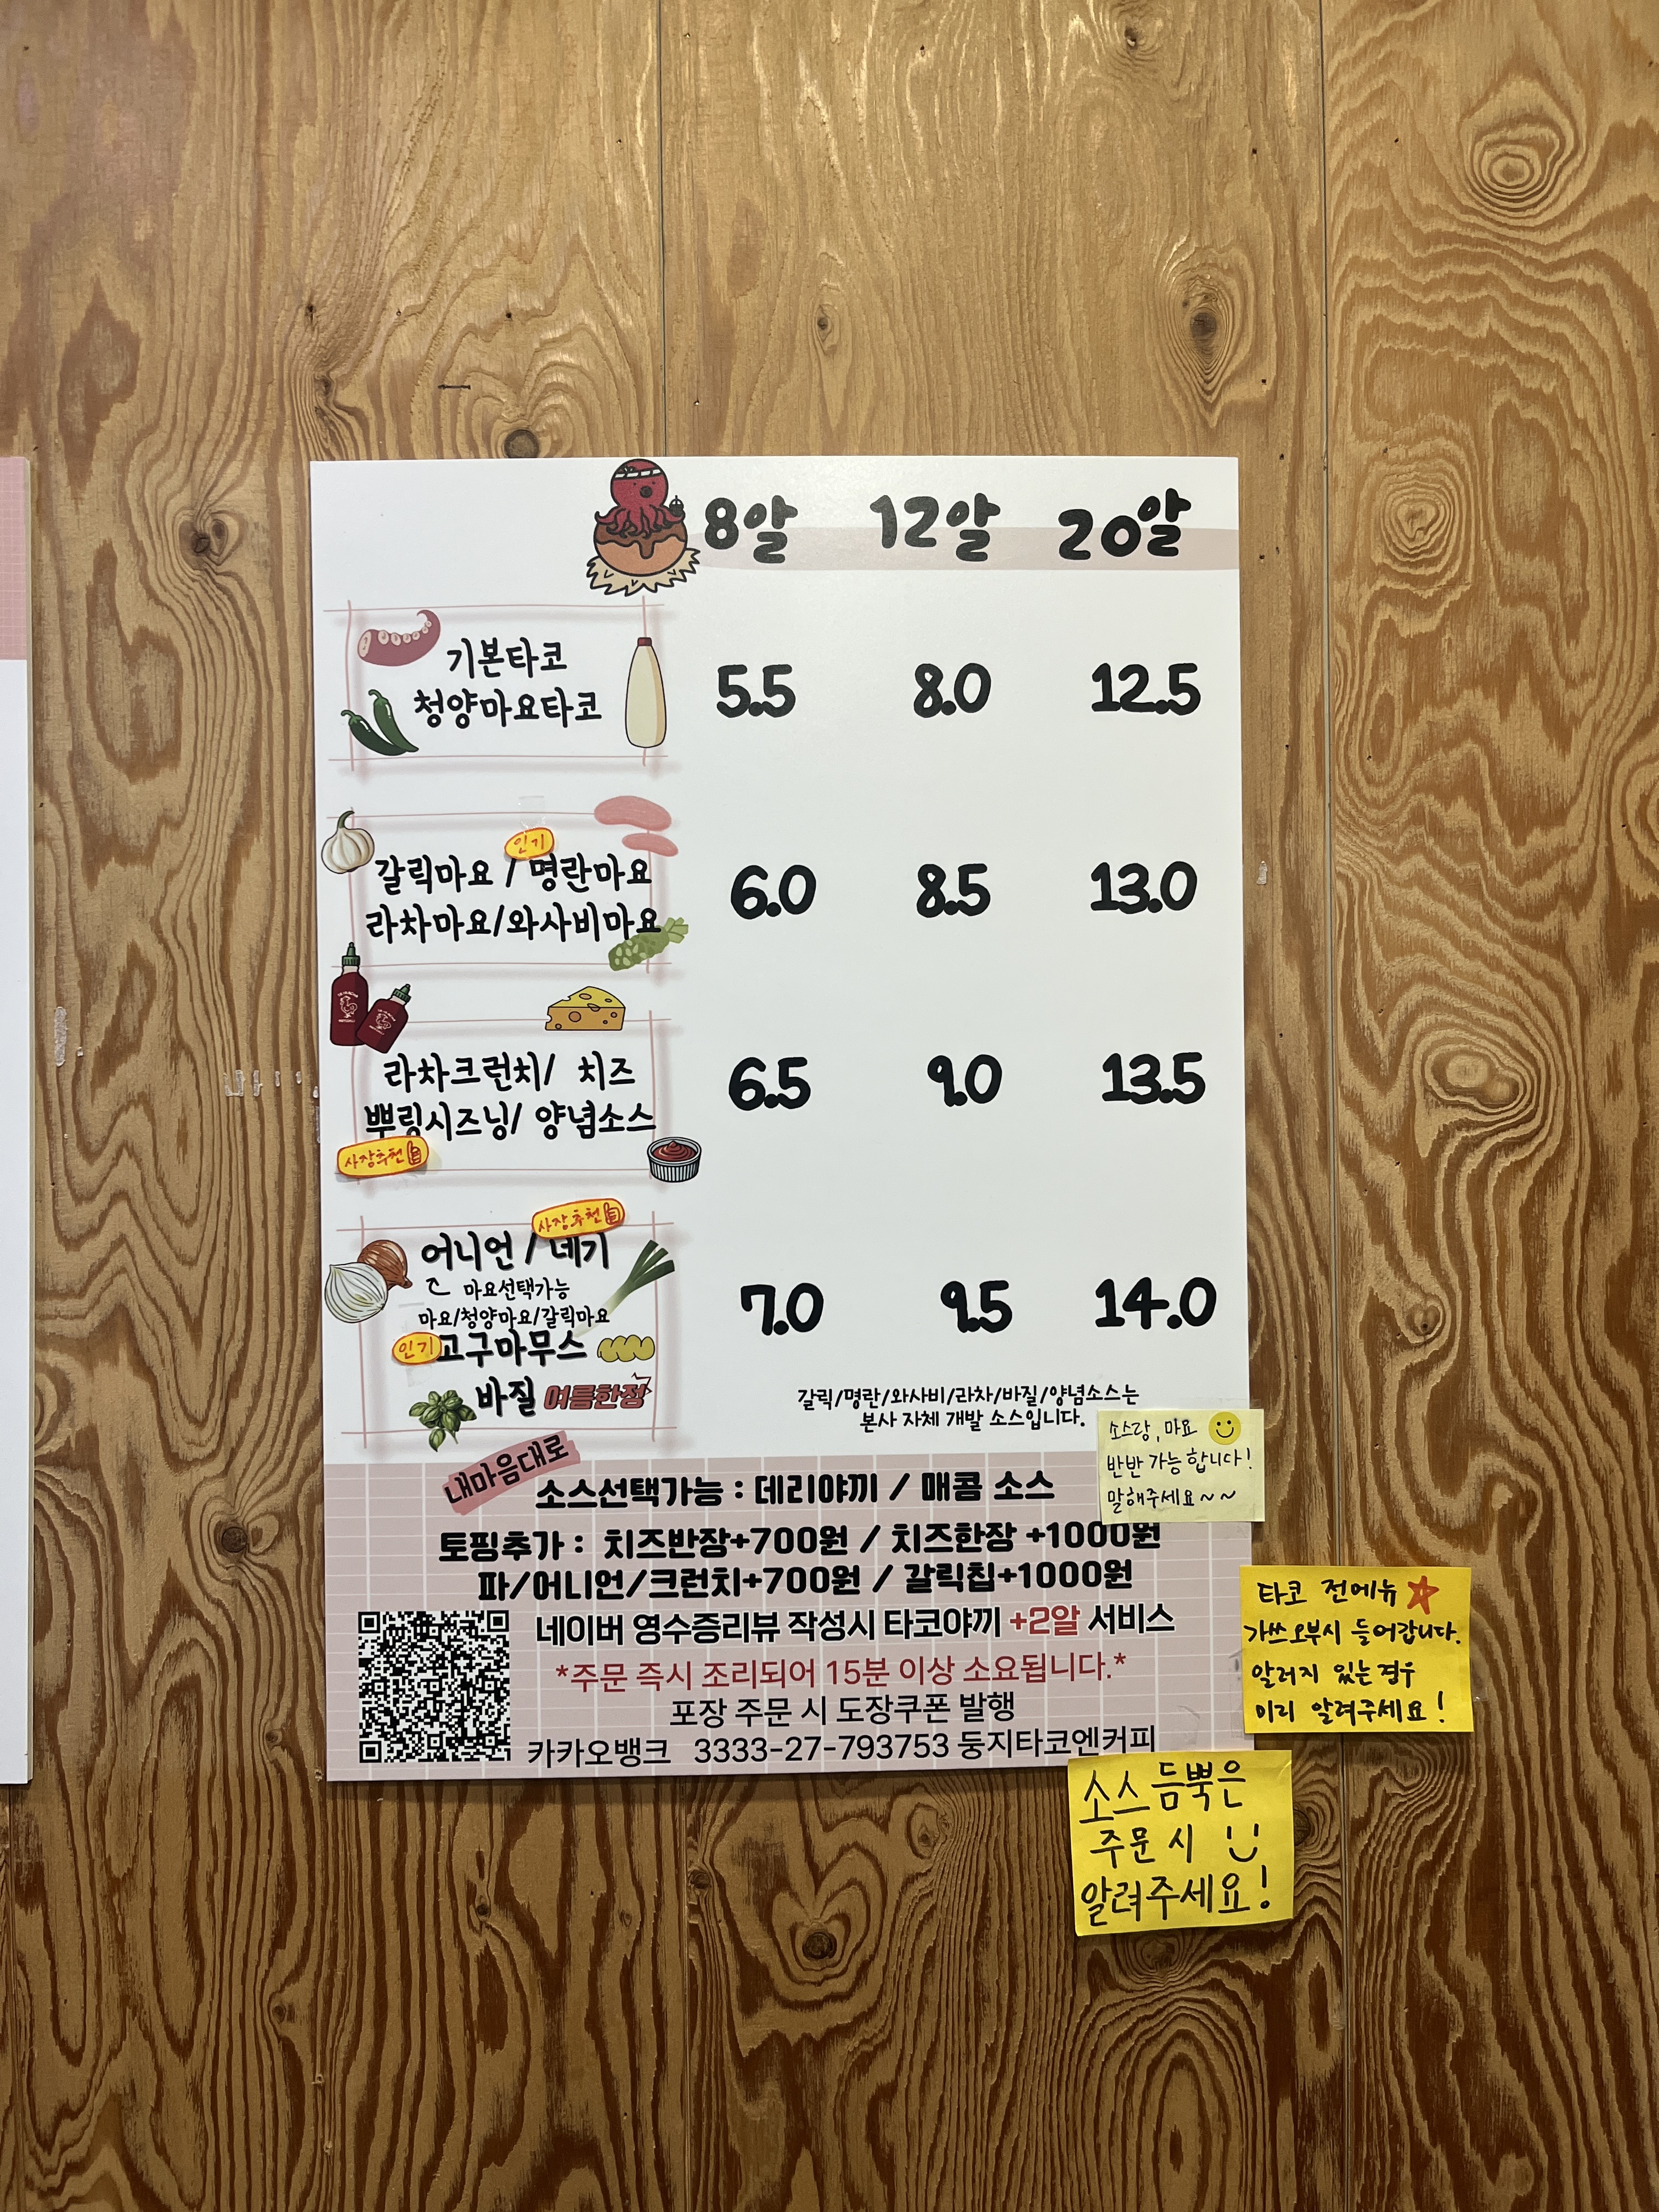 8알 12알 20알
기본타코
청양마요타코
5.5 8.0 12.5
인기
갈릭마요 / 명란마요
라차마요/와사비마요
6.0 8.5 13.0
라차크런치/ 치즈
뿌링시즈닝/ 양념소스
사장추천
6.5 9.0 13.5
사장추천
어니언 / 네기
마요선택가능
마요/청양마요/갈릭마요
인기 고구마무스
바질 여름한정
7.0 9.5 14.0
갈릭/명란/와사비/라차/바질/양념소스는
본사 자체 개발 소스입니다.
소스랑, 마요
반반 가능합니다!
말해주세요~~
내마음대로
소스선택가능 : 데리야끼 / 매콤 소스
토핑추가 : 치즈반장+700원 / 치즈한장 +1000원
파/어니언/크런치+700원 / 갈릭칩+1000원
네이버 영수증리뷰 작성시 타코야끼 +2알 서비스
*주문 즉시 조리되어 15분 이상 소요됩니다.*
포장 주문 시 도장쿠폰 발행
카카오뱅크 3333-27-793753 둥지타코엔커피
타코 전메뉴
가쓰오부시 들어갑니다.
알러지 있는경우
미리 알려주세요!
소스 듬뿍은
주문 시
알려주세요!